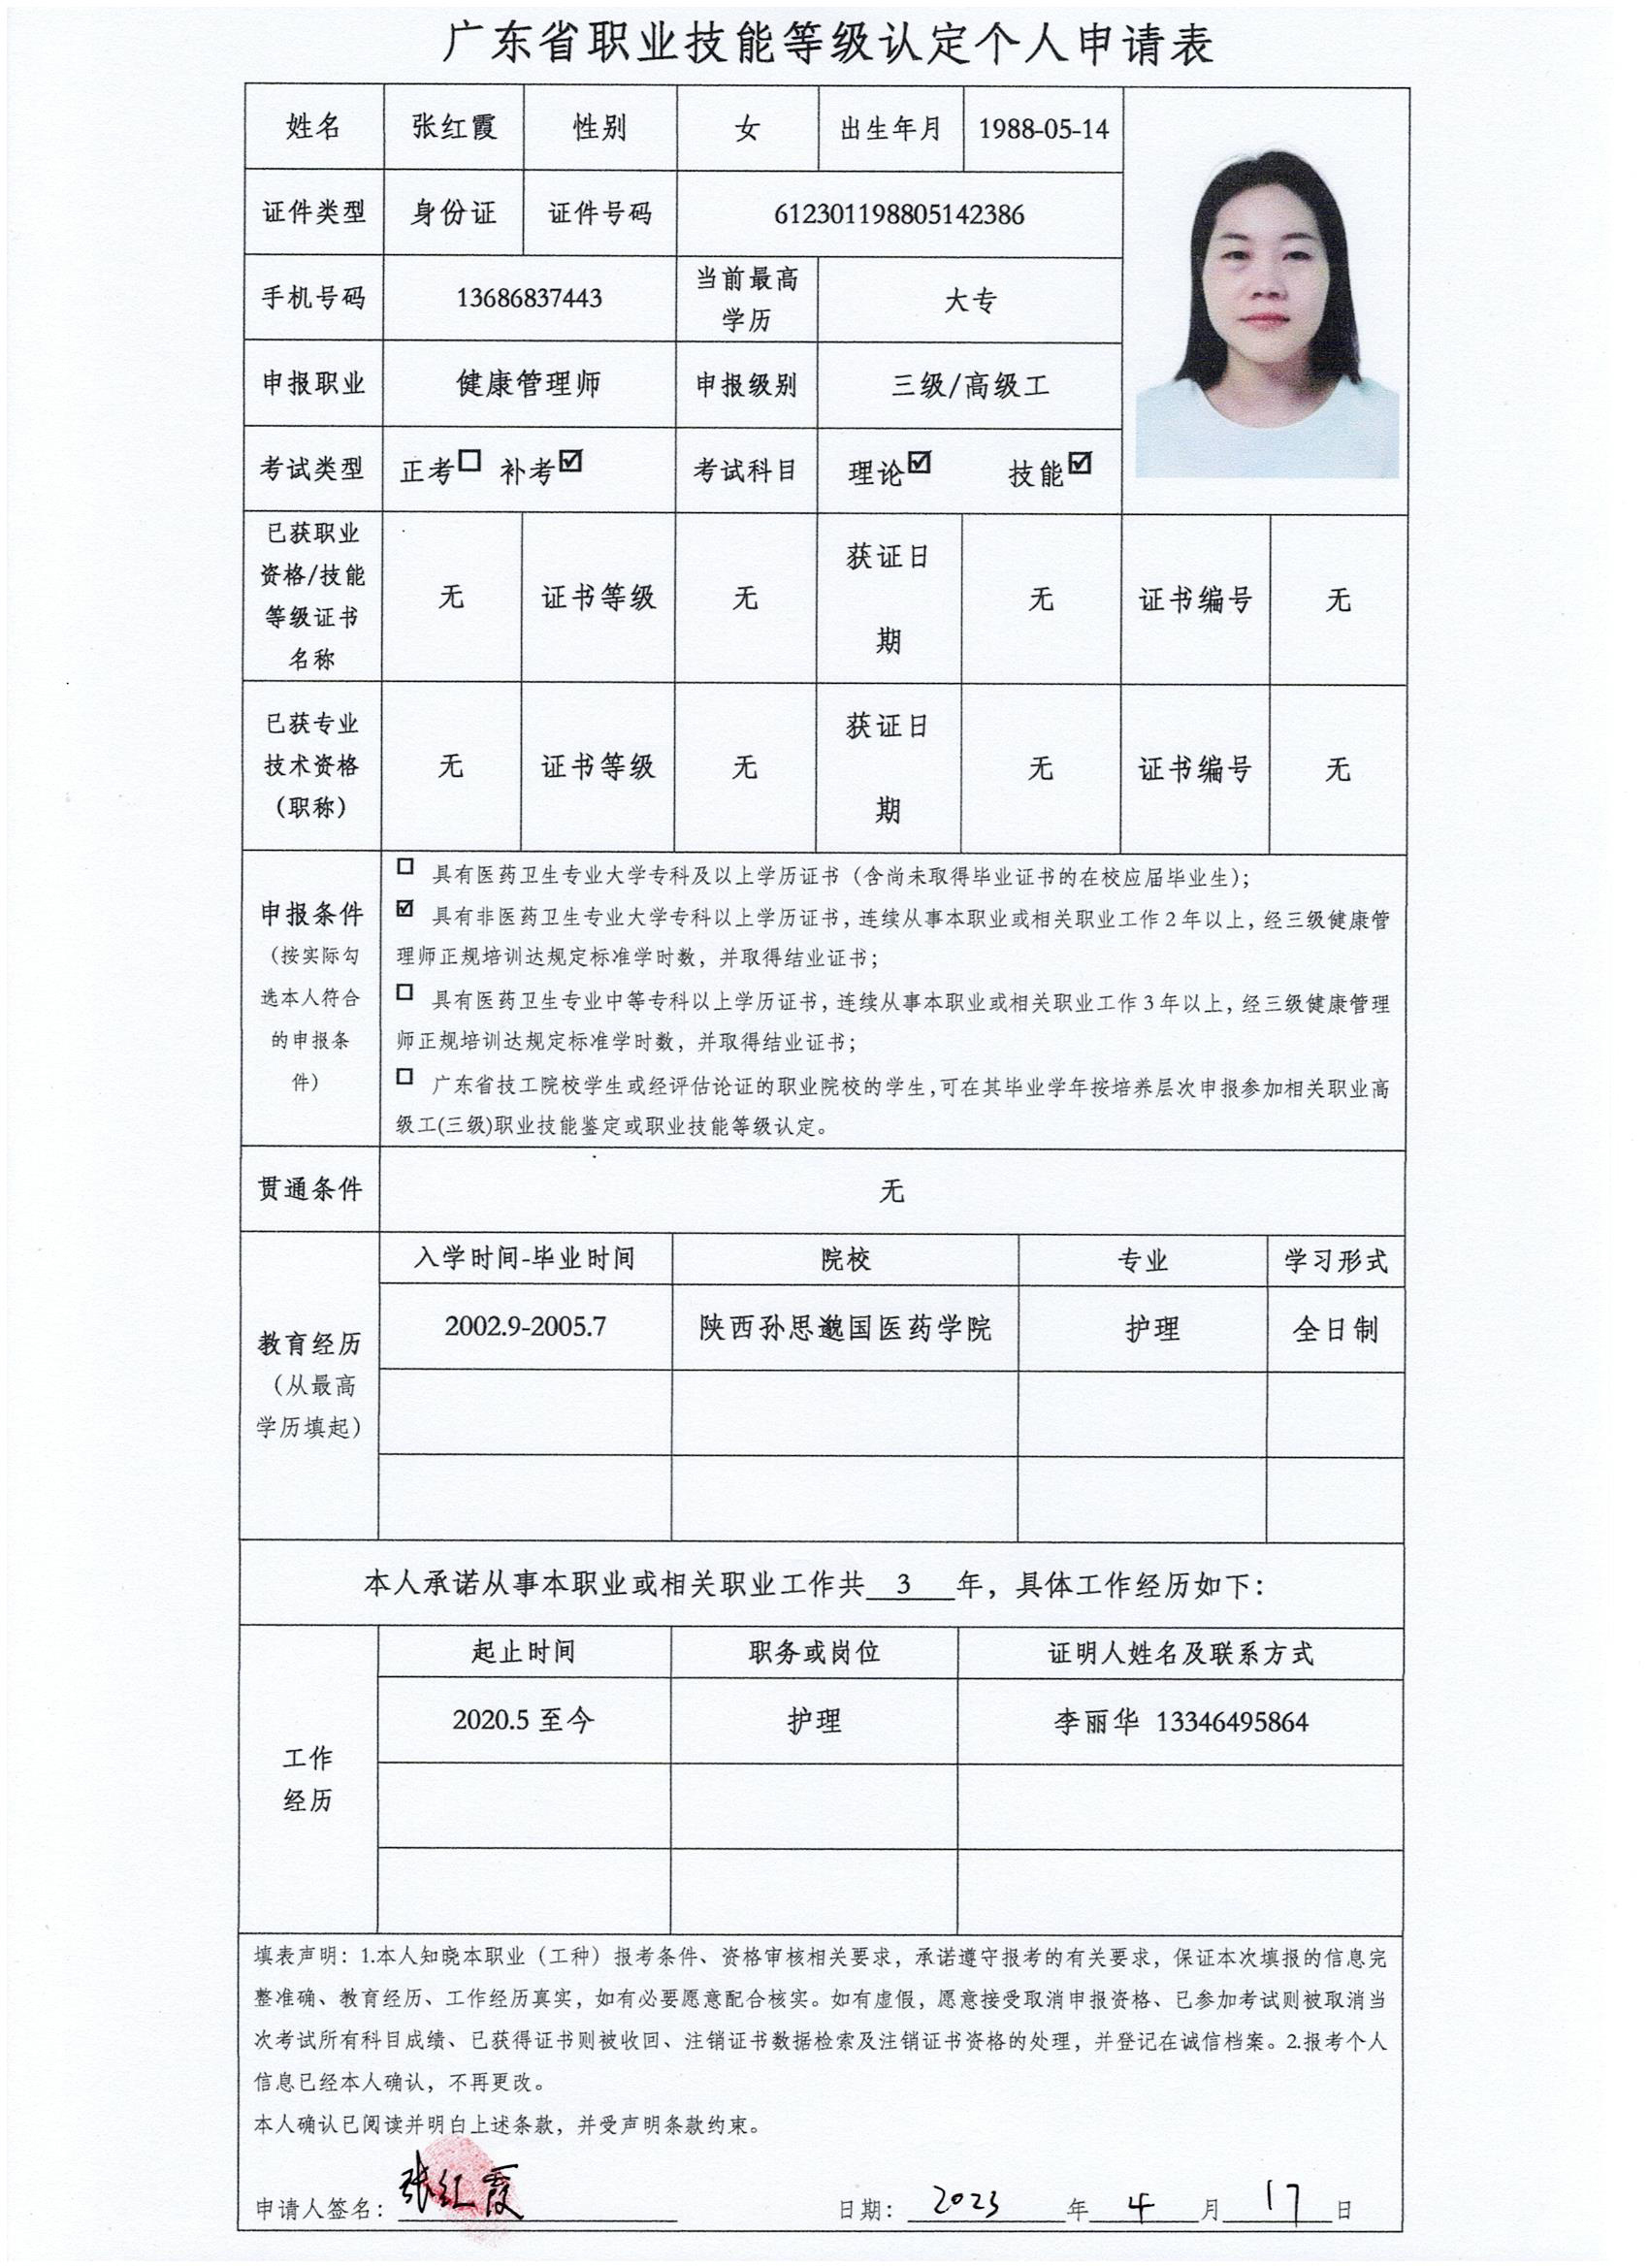 广东省职业技能等级认定个人申请表
姓名 张红霞 性别 女 出生年月 1988-05-14
证件类型 身份证 证件号码 612301198805142386
手机号码 13686837443 当前最高学历 大专
申报职业 健康管理师 申报级别 三级/高级工
考试类型 正考☐ 补考☑ 考试科目 理论☑ 技能☑
已获职业
资格/技能
等级证书
名称
无 证书等级 无 获证日期 无 证书编号 无
已获专业
技术资格
（职称）
无 证书等级 无 获证日期 无 证书编号 无
申报条件
（按实际勾
选本人符合
的申报条
件）
☐ 具有医药卫生专业大学专科及以上学历证书（含尚未取得毕业证书的在校应届毕业生）；
☑ 具有非医药卫生专业大学专科以上学历证书，连续从事本职业或相关职业工作2年以上，经三级健康管
理师正规培训达规定标准学时数，并取得结业证书；
☐ 具有医药卫生专业中等专科以上学历证书，连续从事本职业或相关职业工作3年以上，经三级健康管理
师正规培训达规定标准学时数，并取得结业证书；
☐ 广东省技工院校学生或经评估论证的职业院校的学生，可在其毕业学年按培养层次申报参加相关职业高
级工(三级)职业技能鉴定或职业技能等级认定。
贯通条件 无
教育经历
（从最高
学历填起）
入学时间-毕业时间 院校 专业 学习形式
2002.9-2005.7 陕西孙思邈国医药学院 护理 全日制
本人承诺从事本职业或相关职业工作共 3 年，具体工作经历如下：
工作
经历
起止时间 职务或岗位 证明人姓名及联系方式
2020.5 至今 护理 李丽华 13346495864
填表声明：1.本人知晓本职业（工种）报考条件、资格审核相关要求，承诺遵守报考的有关要求，保证本次填报的信息完
整准确、教育经历、工作经历真实，如有必要愿意配合核实。如有虚假，愿意接受取消申报资格、已参加考试则被取消当
次考试所有科目成绩、已获得证书则被收回、注销证书数据检索及注销证书资格的处理，并登记在诚信档案。2.报考个人
信息已经本人确认，不再更改。
本人确认已阅读并明白上述条款，并受声明条款约束。
申请人签名：张红霞 日期：2023年4月17日